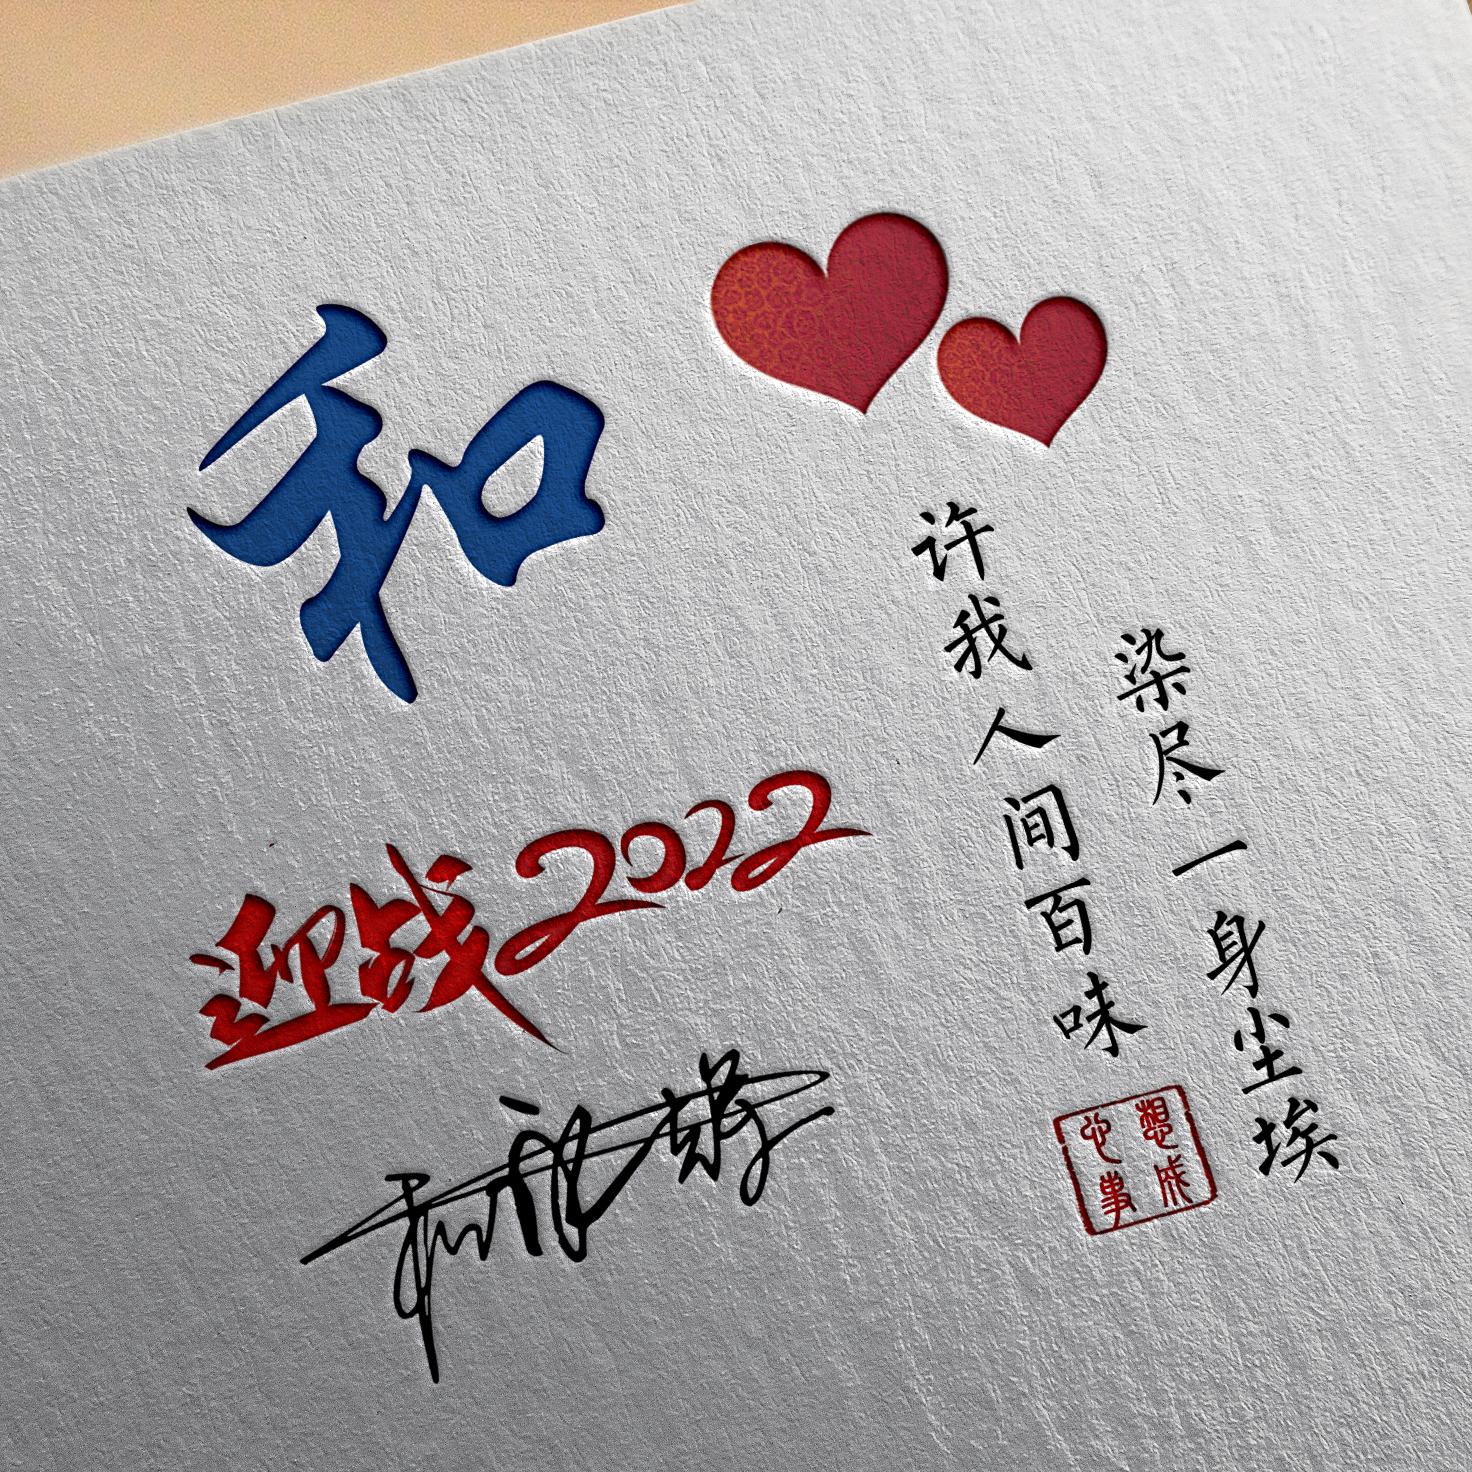 和
迎战2022
许我人间百味
染尽一身尘埃
想成
心事